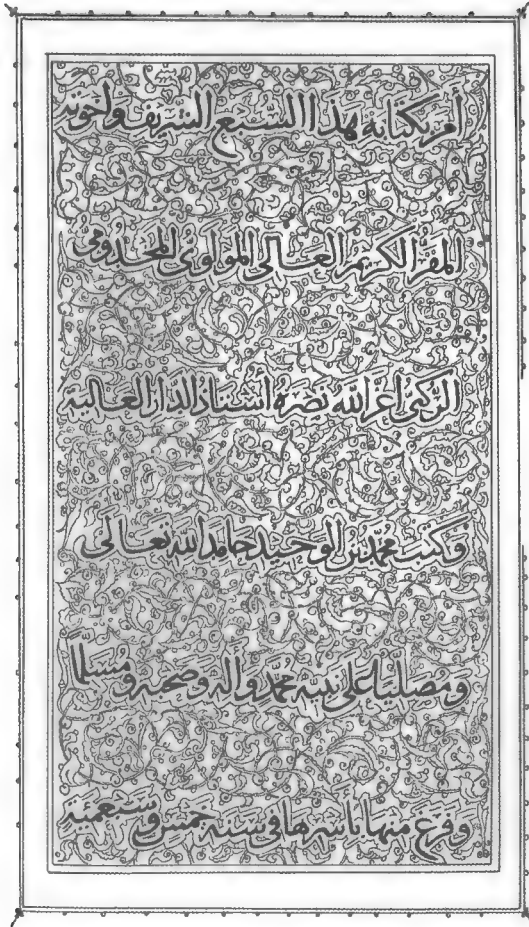 أمر بكتابة هذا السبع الشريف وأخوته
المقر الكريم العالي المولوي المخدومي
الركني أعز الله نصره أستاذ الدار العالية
وكتب محمد بن الوحيد حامدا لله تعالى
ومصليا على نبيه محمد وأله وصحبه ومسلما
وفرغ منها بأسرها في سنة خمس وسبعمئة